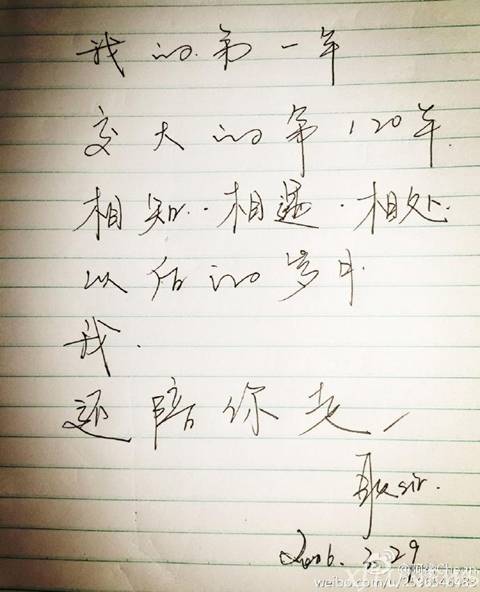 我的第一年
交大的第120年.
相知.相遇.相处.
以后的岁月.
我.
还陪你走
sir.
2016.3.29